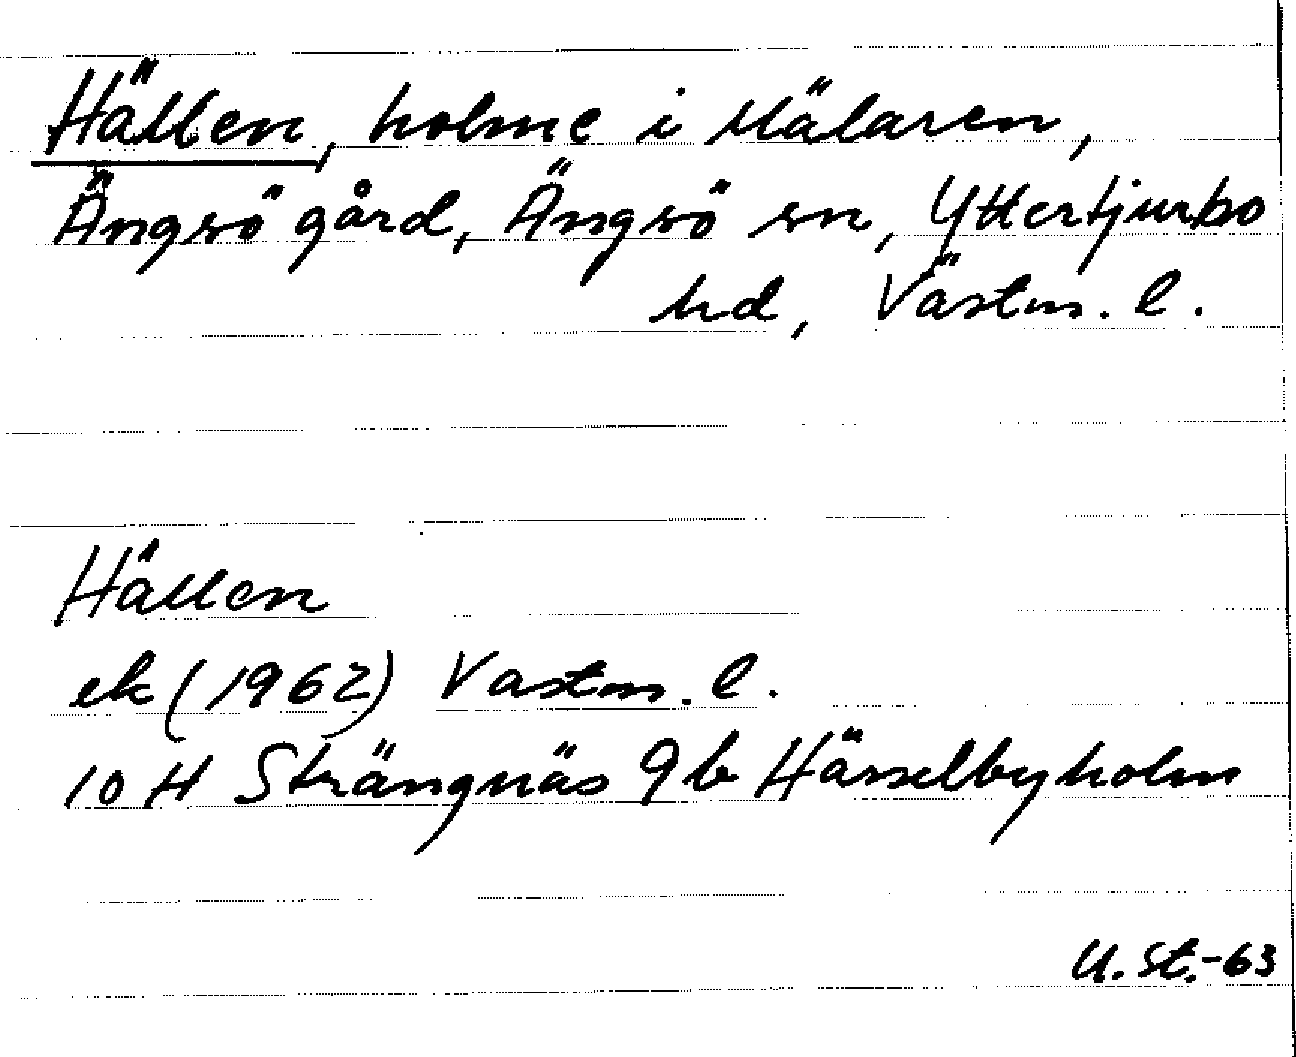 Hällen, holme i Mälaren,
Ängsö gård, Ängsö sn, Yttertjurbo
hd, Västm. l.
Hällen
ek (1962) Vastm. l.
10 H Strängnäs 9 b Hässelbyholm
U. St.-63